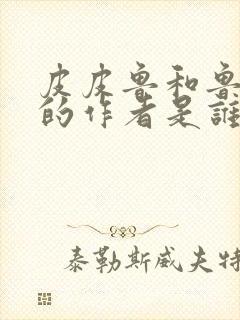 皮皮鲁和鲁
的作者是誰
泰勒斯威夫特